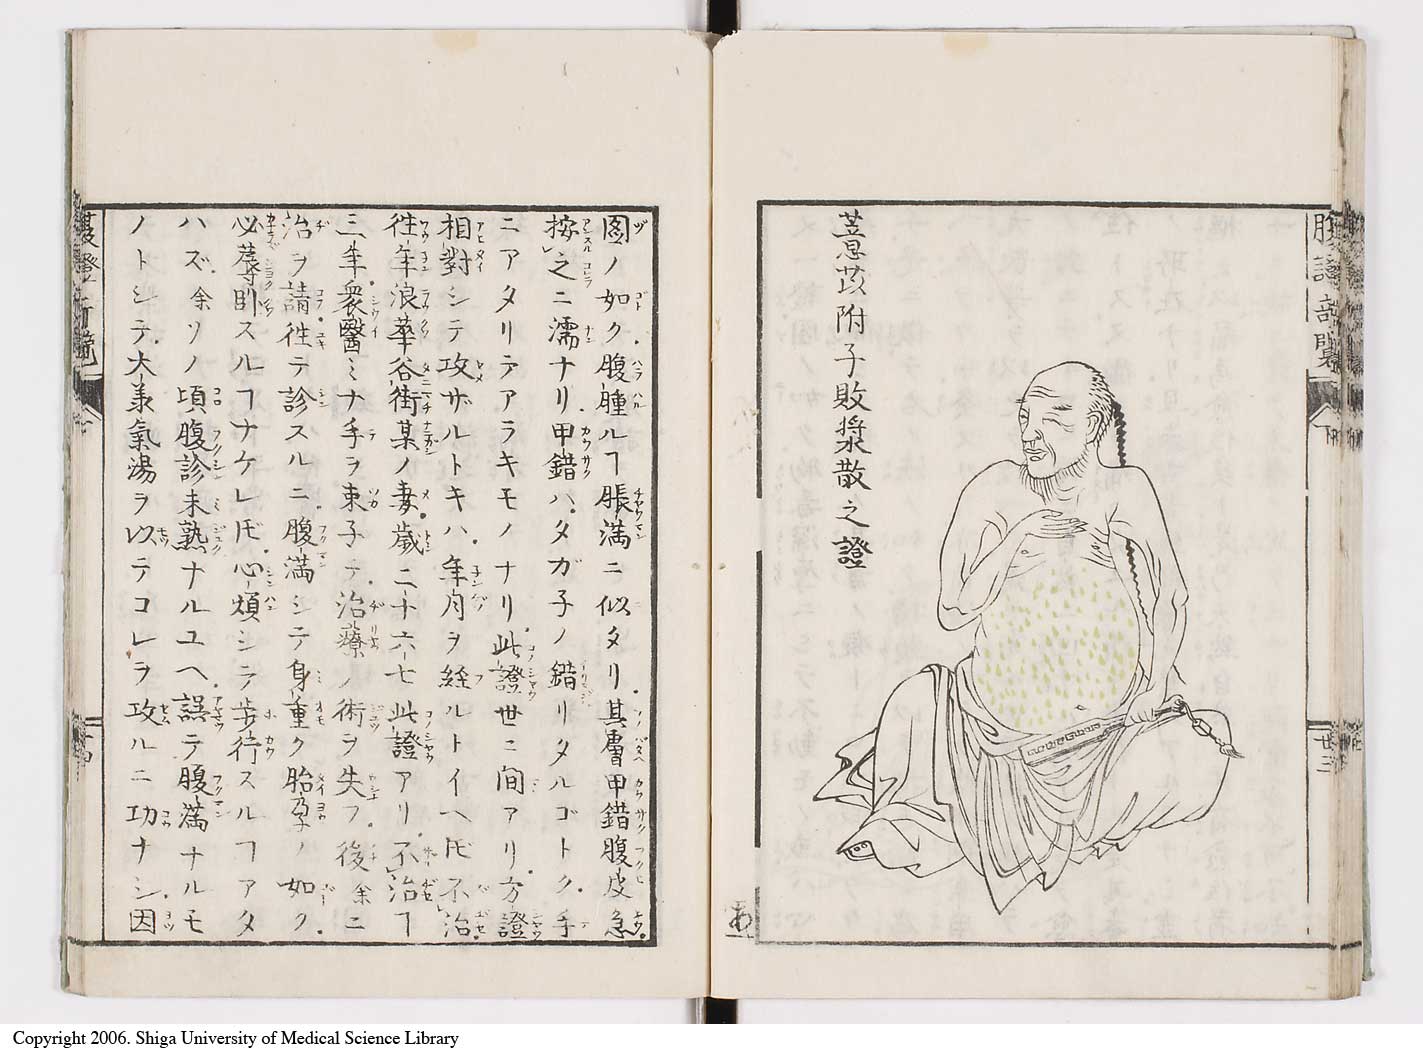 腹證奇覽
廿三
薏苡附子敗漿散之證
圖ノ如ク腹腫ルヿ脹満ニ似タリ其膚甲錯腹皮急
按之ニ濡ナリ甲錯ハタガ子ノ錯リタルゴトク手
ニアタリテアラキモノナリ此證世ニ間アリ方證
相對シテ攻ザルトキハ年月ヲ経ルトイヘ𪜈不治
徃年浪華谷街某ノ妻歳二十六七此證アリ不治ヿ
三年衆醫ミナ手ヲ束子テ治療ノ術ヲ失フ後余ニ
治ヲ請徃テ診スルニ腹満シテ身重ク胎孕ノ如ク
必辱則スルヿナケレ𪜈心煩シテ歩行スルヿアタ
ハズ余ソノ頃腹診未熟ナルユヘ誤テ腹満ナルモ
ノトシテ大羕氣湯ヲ以テコレヲ攻ルニ功ナシ因
Copyright 2006. Shiga University of Medical Science Library